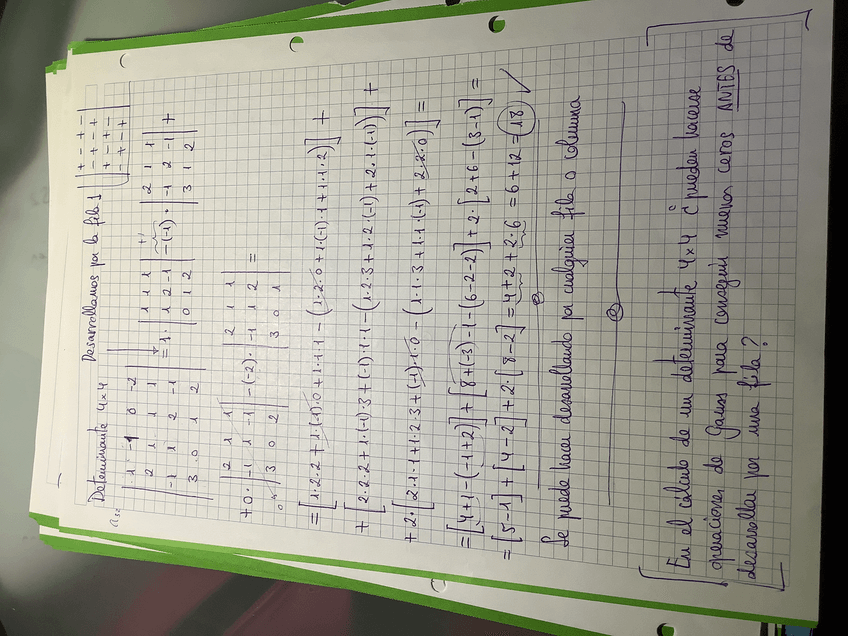 Determinante 4x4 Desarrollamos por la fila 1
| + - + - |
| - + - + |
| + - + - |
| - + - + |
| 1 -1 0 -2 |
| 2 1 1 1 |
| -1 1 2 -1 |
| 3 0 1 2 |
= 1· | 1 1 1 | - (-1) · | 2 1 1 | +
| 1 2 -1 | | -1 2 -1 |
| 0 1 2 | | 3 1 2 |
+ 0 · | 2 1 1 | - (-2) · | 2 1 1 | =
| -1 1 -1 | | -1 1 2 |
| 3 0 2 | | 3 0 1 |
= [1·2·2 + 1·(-1)·0 + 1·1·1 - (1·2·0 + 1·(-1)·1 + 1·1·2)] +
+ [2·2·2 + 1·(-1)·3 + (-1)·1·1 - (1·2·3 + 1·2·(-1) + 2·1·(-1))] +
+ 2·[2·1·1 + 1·2·3 + (-1)·1·0 - (1·1·3 + 1·1·(-1) + 2·2·0)] =
= [4+1-(-1+2)] + [8+(-3)-1-(6-2-2)] + 2·[2+6-(3-1)] =
= [5-1] + [4-2] + 2·[8-2] = 4+2+2·6 = 6+12 = 18 ✓
Se puede hacer desarrollando por cualquier fila o columna
En el cálculo de un determinante 4x4 ¿pueden hacerse
operaciones de Gauss para conseguir nuevos ceros ANTES de
desarrollar por una fila?